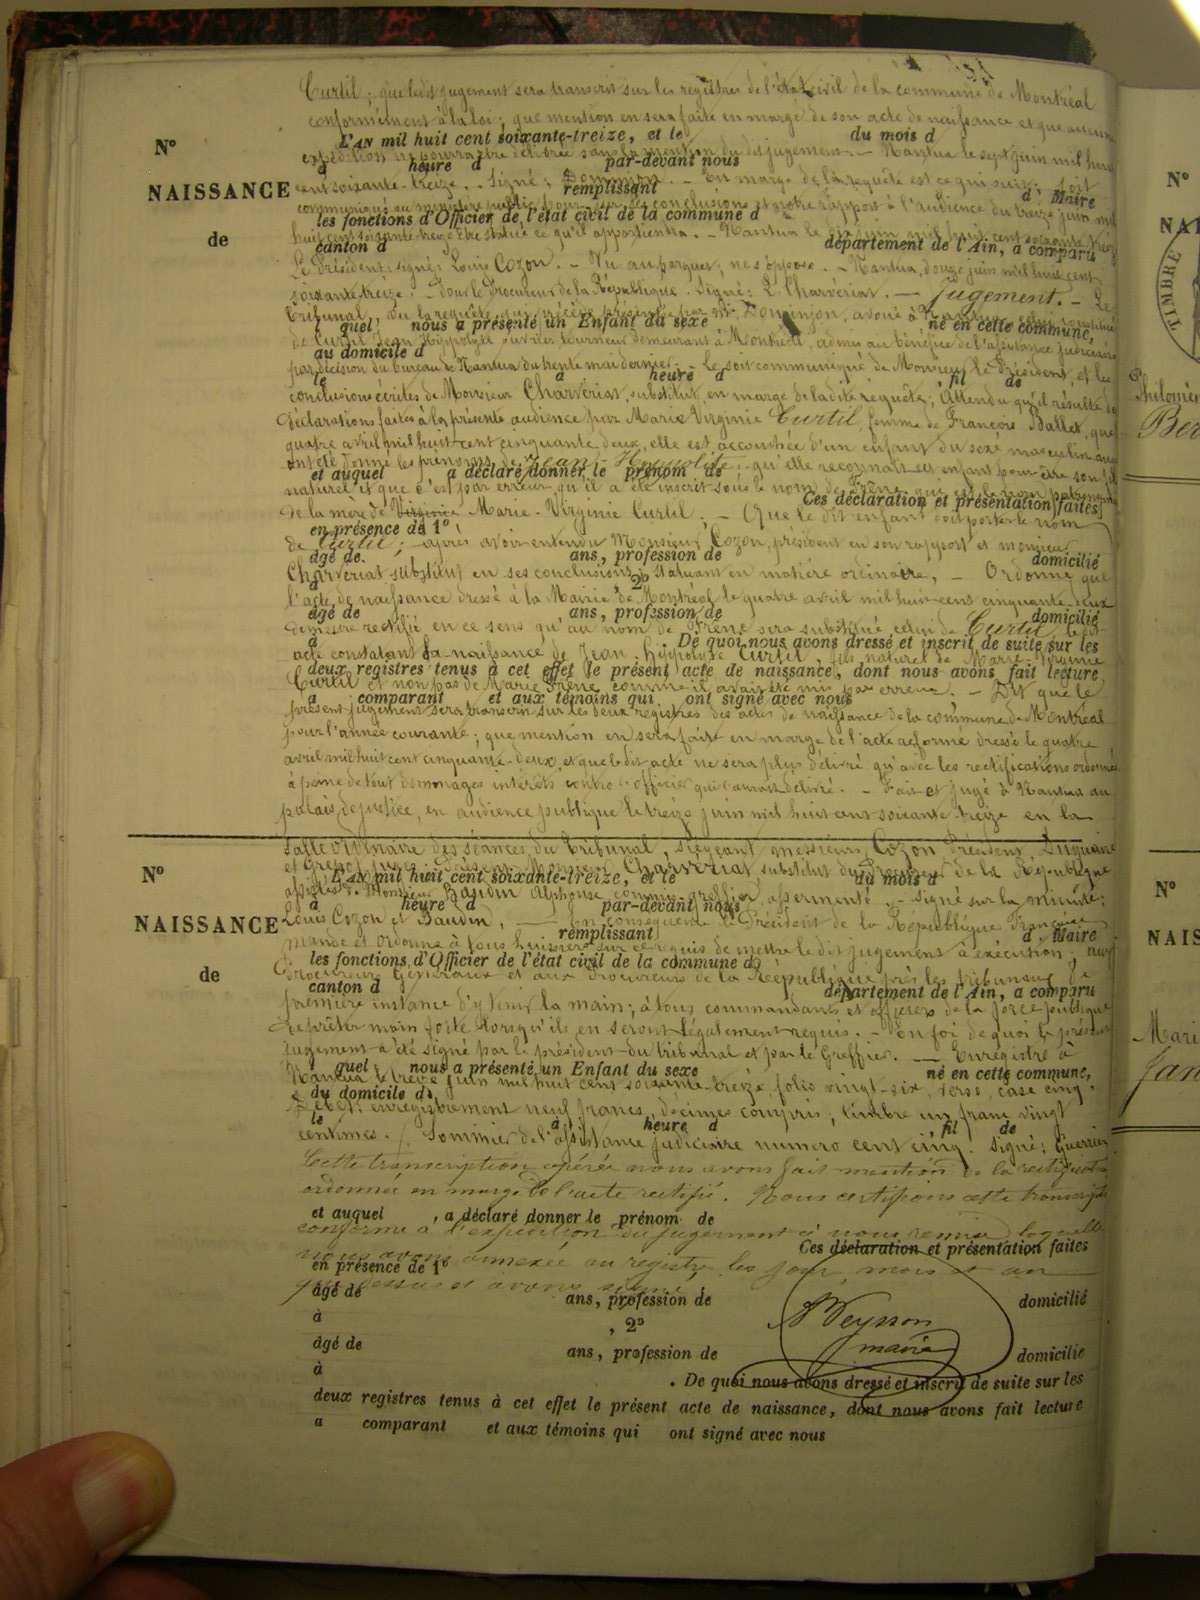 Curtil ; que ledit jugement sera transcrit sur les registres de l'état civil de la commune de Montréal
conformément à la loi ; que mention en sera faite en marge de son acte de naissance et que aucune
N° L'AN mil huit cent soixante-treize, et le du mois d
expédition ne pourra être délivrée sans la mention du dit jugement. - Nantua le sept juin mil huit
à heure d par-devant nous
cent soixante-treize. - Signé ; - En marge de la requête est ce qui suit ; soit
NAISSANCE remplissant d Maire
communiqué au ministère public pour sur ses conclusions et notre rapport à l'audience du treize juin mil
les fonctions d'Officier de l'état civil de la commune d
de
huit cent soixante-treize être statué ce qu'il appartiendra. - Nantua le dix juin mil huit cent soixante treize
canton d département de l'Ain, a comparu
Le Président, signé ; Louis Cozon. - Vu au parquet, ne s'oppose. - Nantua, douze juin mil huit cent
soixante treize. - Pour le Procureur de la République. Signé : L. Charvériat. - Jugement. - Le
tribunal, Vu la requête qui précède présentée par Mr avoué à Nantua
lequel nous a présenté un Enfant du sexe né en cette commune,
de Curtil Jean Hyppolyte ouvrier tourneur demeurant à Montréal, admis au bénéfice de l'assistance judiciaire
au domicile d
par décision du bureau de Nantua du trente mai dernier. - Le soit communiqué de Monsieur le Président, et les
le à heure d fil de
conclusions écrites de Monsieur Charvériat, substitut, en marge de la dite requête ; Attendu qu'il résulte de
déclarations faites à la présente audience par Marie Virginie Curtil, femme de François Ballet, que
quatre avril mil huit cent cinquante deux, elle est accouchée d'un enfant du sexe masculin auquel
ont été donné les prénoms de Jean-Hyppolite ; qu'elle reconnaît cet enfant pour être son fils
et auquel a déclaré donner le prénom de
naturel et que c'est par erreur qu'il a été inscrit sous le nom de Frène qui est le nom
Ces déclaration et présentation faites
de la mère de Virginie Marie-Virginie Curtil ; - Que le dit enfant doit porter le nom
en présence de 1°
de Curtil ; - après avoir entendu Monsieur Cozon, président en son rapport et monsieur
âgé de ans, profession de domicilié
Charvériat substitut en ses conclusions, statuant en matière ordinaire, - Ordonne que
à , 2°
l'acte de naissance dressé à la Mairie de Montréal le quatre avril mil huit cent cinquante deux
âgé de ans, profession de domicilié
demeure rectifié en ce sens qu'au nom de Frène sera substitué celui de Curtil, le dit
à . De quoi nous avons dressé et inscrit de suite sur les
acte constatant la naissance de Jean-Hyppolyte Curtil, fils naturel de Marie-Virginie
deux registres tenus à cet effet le présent acte de naissance, dont nous avons fait lecture
Curtil et non pas de Marie Frène comme il avait été mis par erreur. - Dit que le
a comparant et aux témoins qui ont signé avec nous
présent jugement sera transcrit sur les deux registres des actes de naissance de la commune de Montréal
pour l'année courante ; que mention en sera faite en marge de l'acte réformé dressé le quatre
avril mil huit cent cinquante-deux, et que le dit acte ne sera plus délivré qu'avec les rectifications ordonnées
à peine de tout dommages intérêts contre l'officier qui l'aurait délivré. - Fait et jugé à Nantua au
palais de justice, en audience publique le treize juin mil huit cent soixante treize en la
salle ordinaire des séances du tribunal, siégeant messieurs, Cozon Président,
et juges, présent Monsieur Charvériat, substitut du Procureur de la République
N° L'AN mil huit cent soixante-treize, et le du mois d
assistés de Monsieur Baudin Alphonse commis-greffier assermenté. - signé sur la minute :
à heure d par-devant nous
NAISSANCE
Louis Cozon et Baudin. - En conséquence le Président de la République Française
remplissant d Maire
mande et ordonne à tous huissiers sur ce requis de mettre le dit jugement à exécution ; aux
les fonctions d'Officier de l'état civil de la commune d
de
procureurs Généraux et aux Procureurs de la République près les tribunaux de
canton d département de l'Ain, a comparu
première instance d'y tenir la main ; à tous commandants et officiers de la force publique
de prêter main forte lorsqu'ils en seront légalement requis. - En foi de quoi le présent
jugement a été signé par le président du tribunal et par le Greffier. - Enregistré à
lequel nous a présenté un Enfant du sexe né en cette commune,
Nantua le treize juin mil huit cent soixante-treize, folio vingt-six, verso, case cinq.
au domicile d
Débet : enregistrement neuf francs, décimes compris ; timbre un franc vingt
le à heure d fil de
centimes. Sommier de l'assistance judiciaire numéro cent cinq. Signé : Guerrier
Cette transcription opérée nous avons fait mention de la rectification
ordonnée en marge de l'acte rectifié. Nous certifions cette transcription
et auquel , a déclaré donner le prénom de
conforme à l'expédition du jugement à nous remise, laquelle
Ces déclaration et présentation faites
nous avons annexée au registre les jour, mois et an
en présence de 1°
que dessus et avons signé.
âgé de ans, profession de domicilié
à , 2°
Veysson
maire
âgé de ans, profession de domicilié
à . De quoi nous avons dressé et inscrit de suite sur les
deux registres tenus à cet effet le présent acte de naissance, dont nous avons fait lecture
a comparant et aux témoins qui ont signé avec nous
N°
TIMBRE
Ber
N°
NAIS
Mari